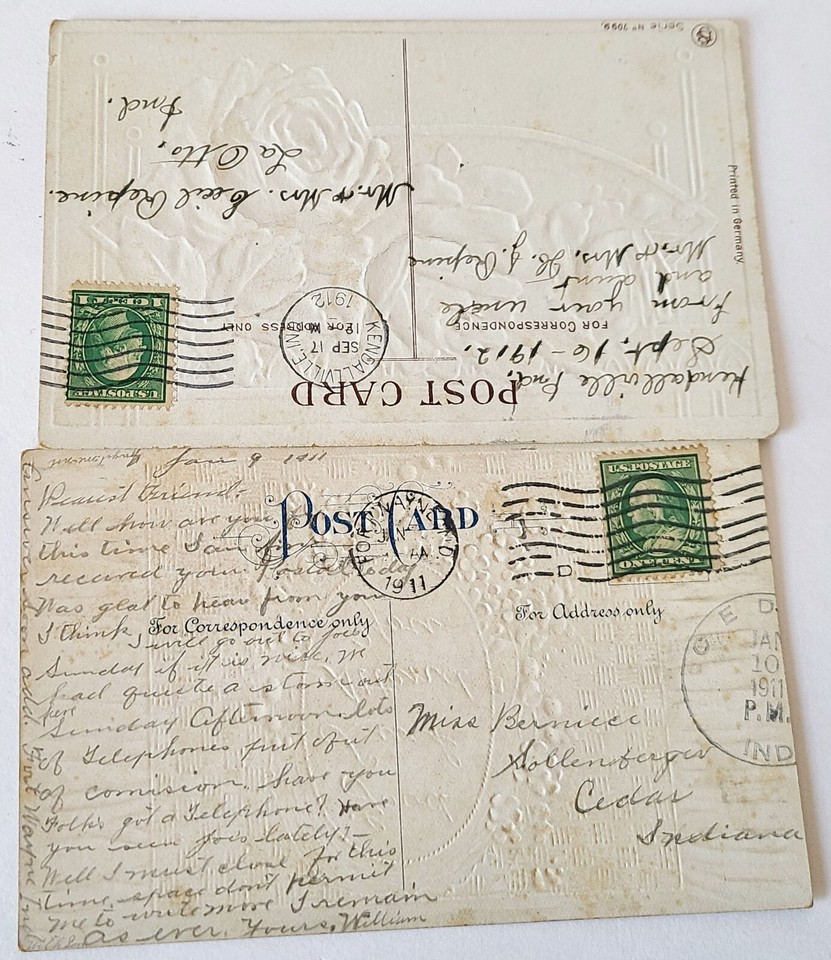 Serie Nº 7099.
Printed in Germany
POST CARD
FOR CORRESPONDENCE
FOR ADDRESS ONLY
KENDALLVILLE, IND.
SEP 17
12 M
1912
U.S. POSTAGE
Kendallville Ind,
Sept. 16-1912.
From your uncle
and aunt
Mr. & Mrs. H. J. Repine
Mr. & Mrs. Cecil Repine.
La Otto,
Ind.
Jan 9 1911
POST CARD
FORT WAYNE, IND
JAN
1911
U.S. POSTAGE
ONE CENT
For Correspondence only
For Address only
Dearest Friend:-
Well how are you
this time I am
received your Postal today
Was glad to hear from you
I think I will go out to
Sunday if it is nice. We
had quite a storm out
here
Sunday Afternoon lots
of Telephones put out
of comision. have you
Folks got a Telephone? Have
you seen lately?-
Well I must close for this
time, space don't permit
me to write more I remain
as ever. Yours, William
Answer soon add Fort Wayne Ind
Miss Bernicce
Sollenberger
Cedar
Indiana
JAN
10
1911
P.M.
IND